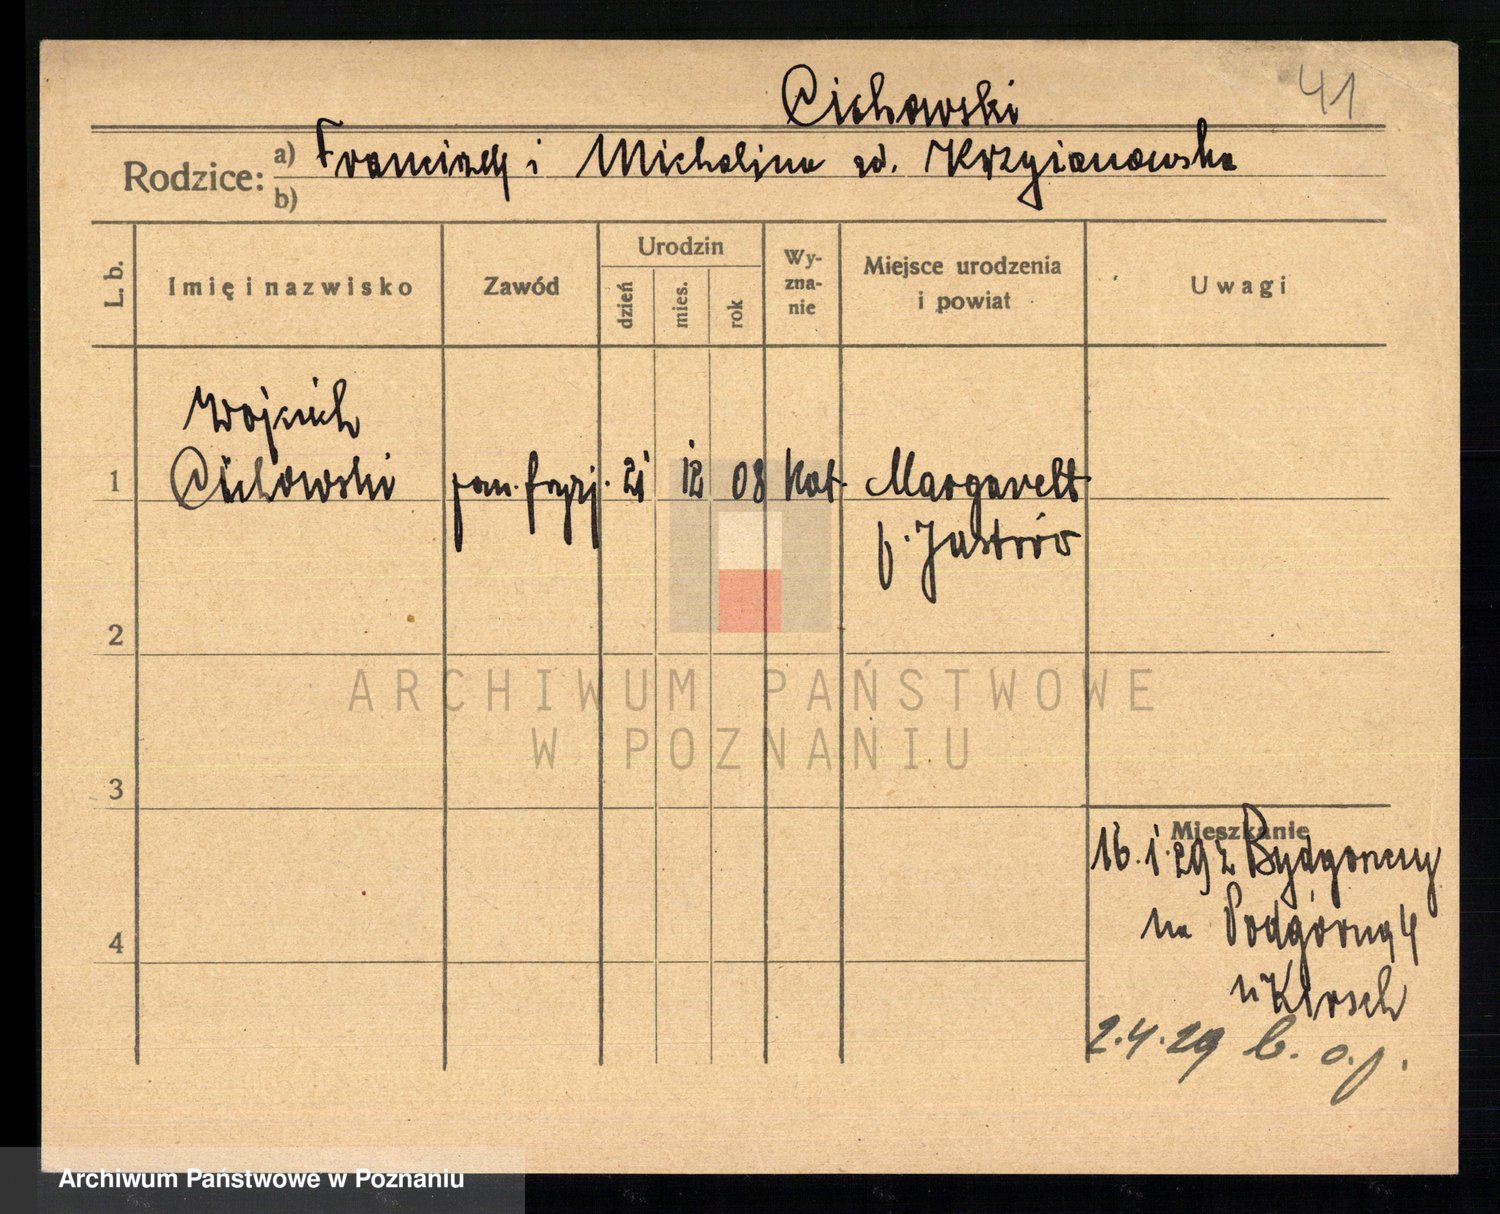 41
Cichowski
Rodzice: a) Franciszek i Michalina zd. Krzyżanowska
b)
L. b.
Imię i nazwisko
Zawód
Urodzin
dzień
mies.
rok
Wy-
zna-
nie
Miejsce urodzenia
i powiat
Uwagi
Wojciech
1 Cichowski pom. fryzj. 21 12 08 kat. Margarett
p. Jastrów
2
ARCHIWUM PAŃSTWOWE
W POZNANIU
3
Mieszkanie
16.1.29 z Bydgoszczy
4
na Podgórną 4
u Klosch
2.4.29 b. o.p.
Archiwum Państwowe w Poznaniu